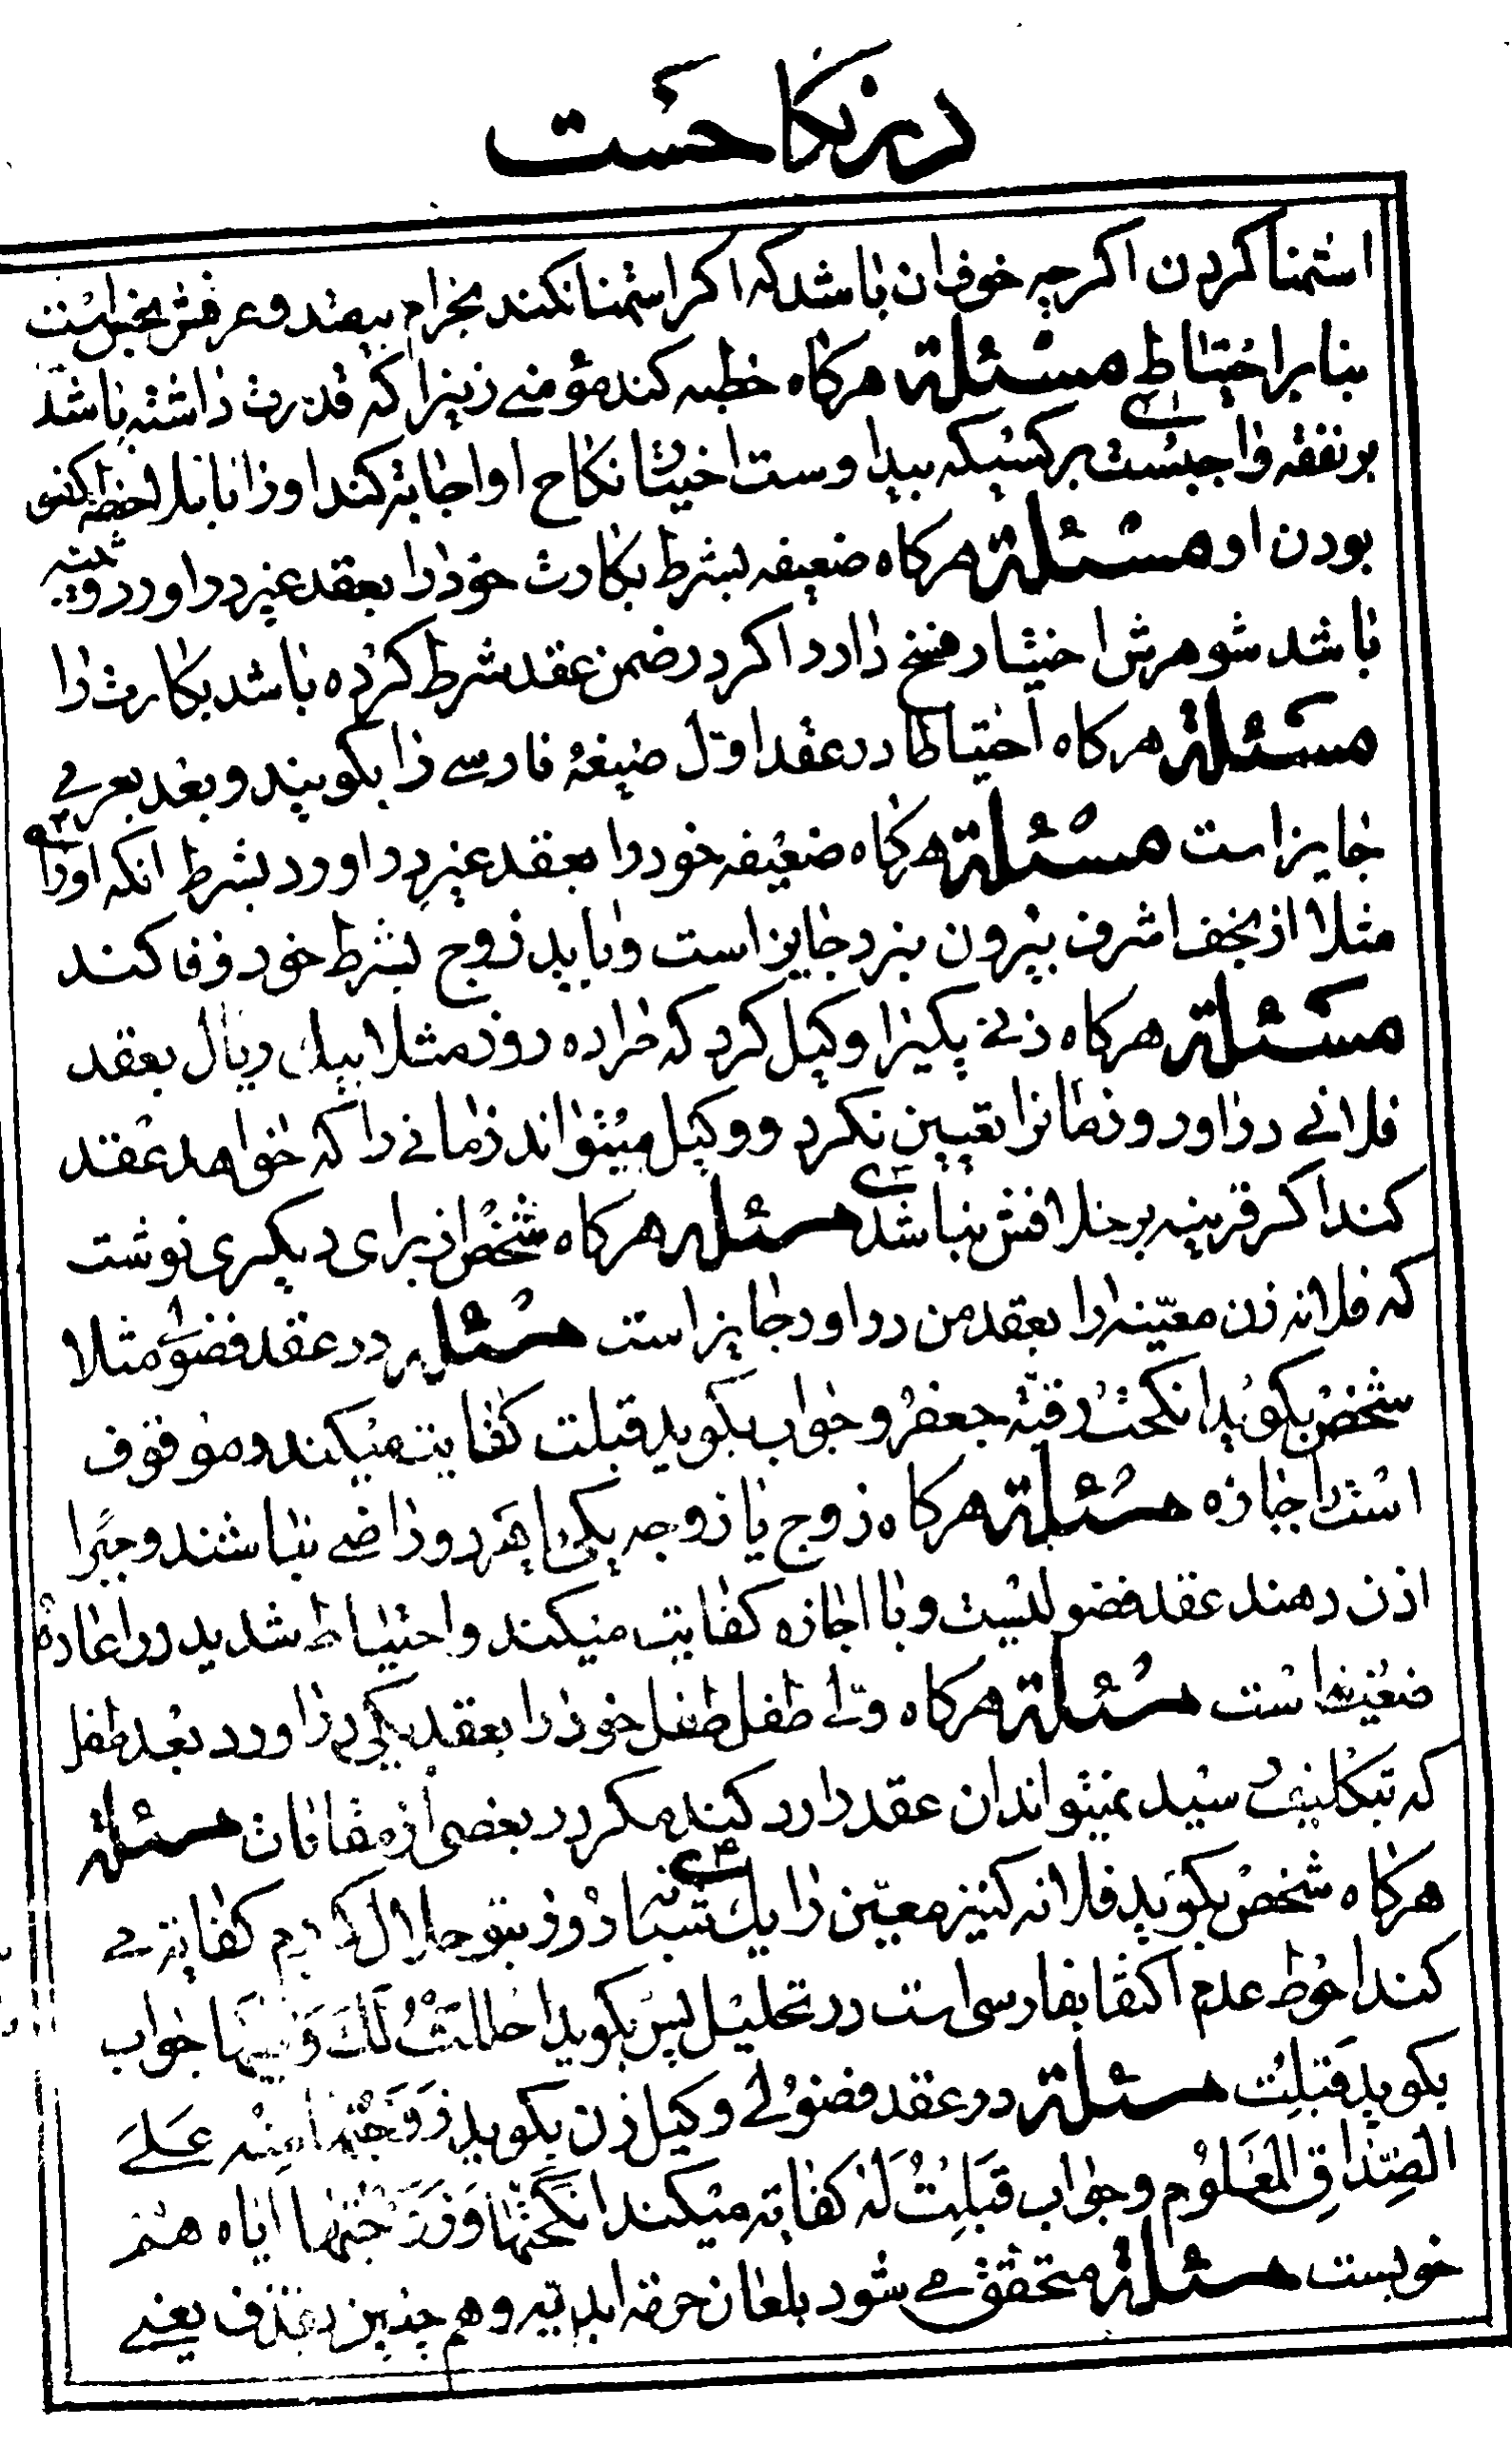 در نکاحست
استمنا کردن اکرچه خوف ان باشد که اکر استمنا نکند بحرام بیفتد و عرقش نجس است
بنابر احتیاط مسئلة هرکاه خطبه کند مؤمنے زنیرا که قدرت داشته باشد
بر نفقه واجبست بر کسیکه بید اوست اختیار نکاح او اجابة کند او را با ملاحظه کفو
بودن او مسئلة هرکاه ضعیفه بشرط بکارت خود را بعقد غیر دراورد و ثیبه
باشد شوهرش اختیار فسخ دارد اکر در ضمن عقد شرط کرده باشد بکارت را
مسئلة هرکاه احتیاطا در عقد اوّل صیغهٔ فارسے را بکویند و بعد بعربے
جایز است مسئلة هرکاه ضعیفه خود را بعقد غیر دراورد بشرط انکه او را
مثلا از نجف اشرف بیرون نبرد جایز است و باید زوج بشرط خود وفا کند
مسئلة هرکاه زنے یکیرا وکیل کرد که مرا ده روز مثلا بیک ریال بعقد
فلانے دراور و زمانرا تعیین نکرد و وکیل میتواند زمانے را که خواهد عقد
کند اکر قرینه بر خلافش نباشد مسئله هرکاه شخص از برای دیکری نوشت
که فلانه زن معیّنه را بعقد من دراور جایز است مسئله در عقد فضولے مثلا
شخص بکوید انکحتُ رقیّه جعفر و جواب بکوید قبلت کفایت میکند و موقوف
است باجازه مسئلة هرکاه زوج یا زوجه یکی یا هر دو راضے نباشند و جبرا
اذن دهند عقد فضولیست و با اجازه کفایت میکند و احتیاط شدید در اعادهٔ
ضعیفه است مسئلة هرکاه ولے طفل طفل خود را بعقد یکی دراورد بعد طفل
که بتکلیف رسید نمیتواند ان عقد را رد کند مکر در بعضی از مقامات مسئلة
هرکاه شخص بکوید فلانه کنیز معیّن را یک شبانه روز بتو حلال کردم کفایة مے
کند احوط عدم اکتفا بفارسی است در تحلیل پس بکوید احللتُ لَكَ وَطیَها جواب
بکوید قَبِلتُ مسئلة در عقد فضولے وکیل زن بکوید زَوَّجْتُها مِنْه عَلَے
الصِّداقِ المَعلُوم و جواب قَبِلتُ لَهُ کفایة میکند انکَحْتُها وَ زَوَّجْتُها ایّاه هم
خوبست مسئلة متحقق مے شود بلعان حرمة ابدیّه و هم چنین بقذف یعنے